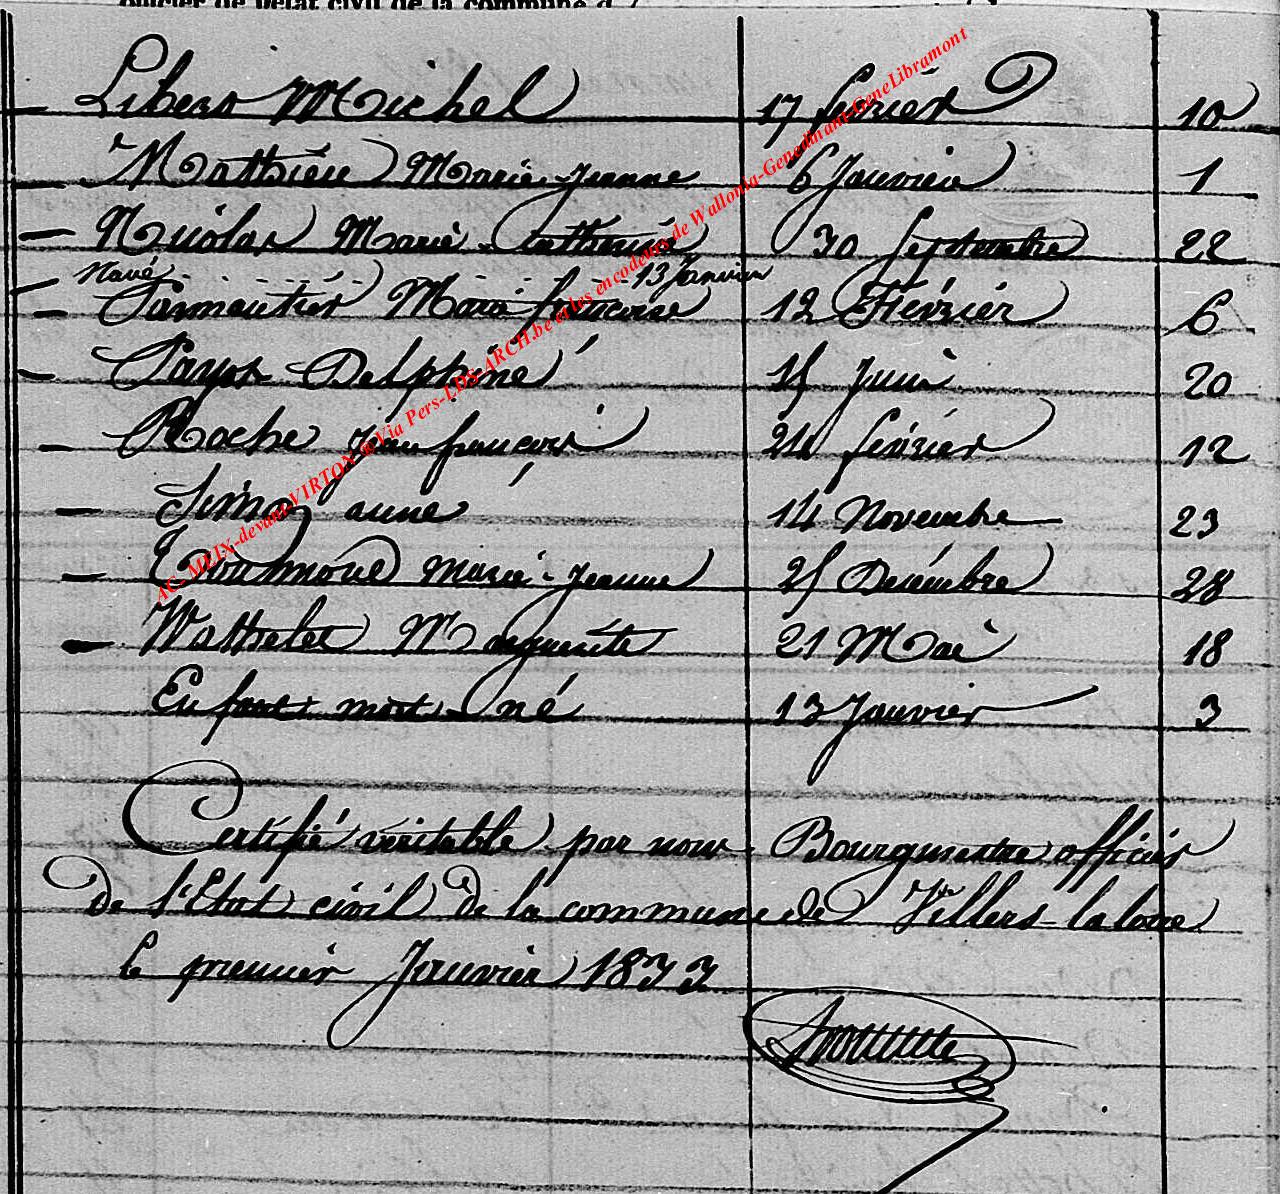 officier de l'état civil de la commune d
Libers Michel 17 fevrier 10
Mathieu Marie-Jeanne 6 Janvier 1
Nicolas Marie Catherine 30 Septembre 22
Navé 13 Janvier
Parmentier Marie françoise 12 Février 6
Payot Delphine 15 Juin 20
Roche Jean françois 24 février 12
Simon anne 14 Novembre 23
Marie-Jeanne 25 Decembre 28
Wathelet Marguerite 21 Mai 18
Enfant mort-né 13 Janvier 3
Certifié véritable par nous Bourgmestre officier
de l'Etat civil de la commune de Villers-la loue
le premier Janvier 1833
AC-MEIX-devant-VIRTON @Via Pers-LDS-ARCH.be et les encodeurs de Wallonia-Genedinant-GeneLibramont